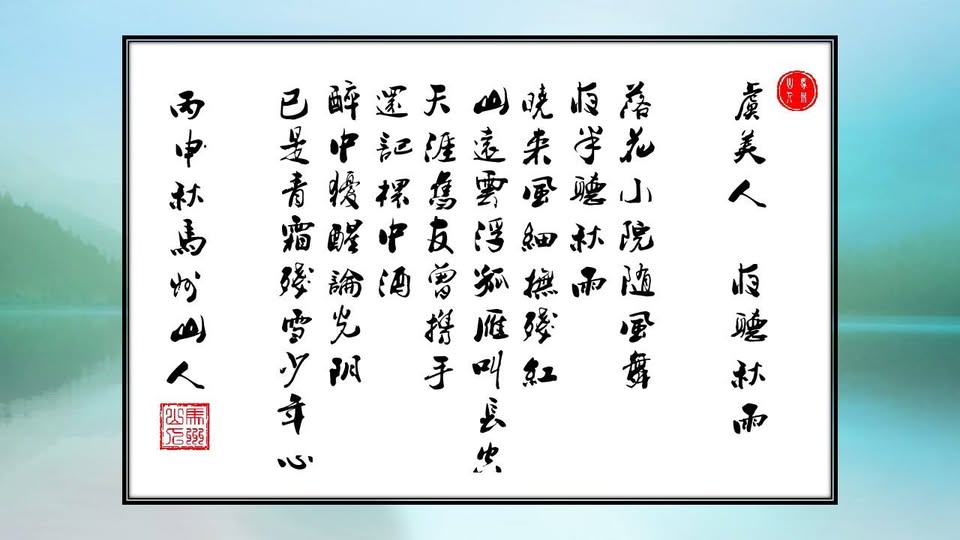 虞美人 夜聽秋雨
落花小院随風舞
夜半聽秋雨
曉来風細撫殘紅
山遠雲浮孤雁叫長空
天涯舊友曾攜手
還記杯中酒
醉中猶醒論光阴
已是青霜殘雪少年心
丙申秋馬州山人
馬州山人